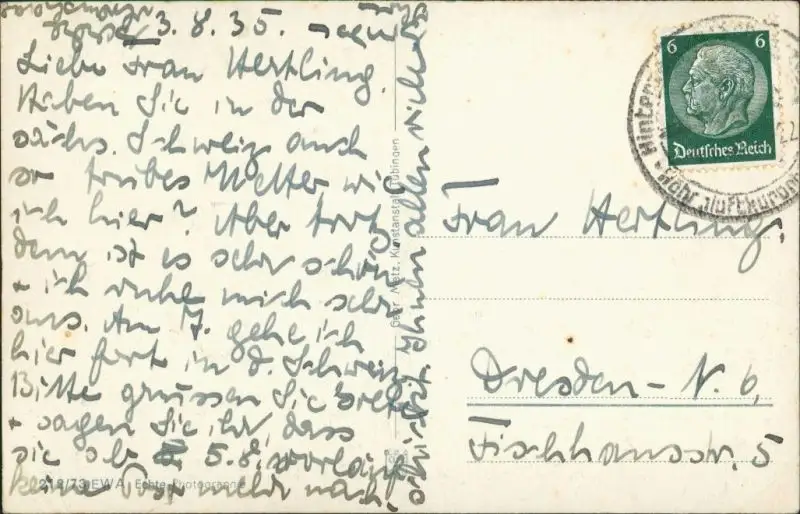 3.8.35.
Liebe Frau Hertling.
Haben Sie in der
sächs. Schweiz auch
so trübes Wetter wie
ich hier? Aber trotz
dem ist es sehr schön
+ ich ruhe mich sehr
aus. Am 7. gehe ich
hier fort in d. Schweiz
Bitte grüssen Sie
+ sagen Sie ihr, dass
sie ab 5.8. vorläufig
keine Post mehr nach-
schickt. Ihnen allen
Gebr. Metz, Kunstanstalt, Tübingen
218/73 EWA Echte Photographie
6 6
Deutsches Reich
Hinter
Frau Hertling.
Dresden-N. 6,
Fischhausstr. 5